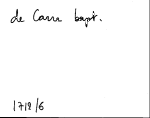 de Cann bapt.
1718/6